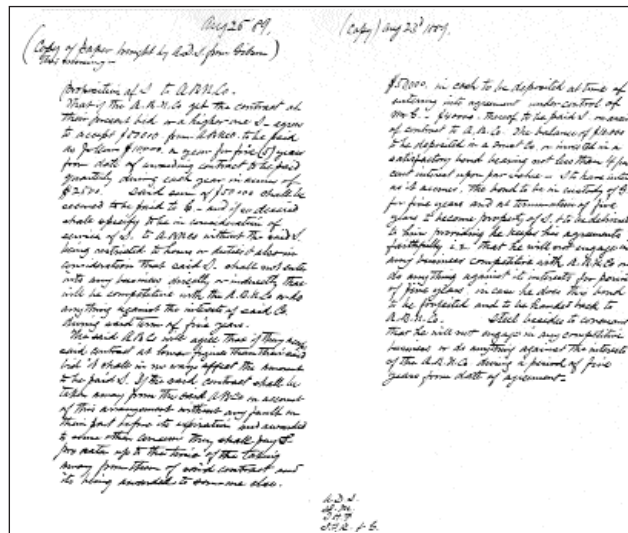 Aug 26 89,
(Copy of paper brought by A.D.S. from Gibson)
this morning—
Proposition of S to A.B.N.Co.
That if the A.B.N.Co get the contract at
their present bid or a higher one S– agrees
to accept $50000 from A.B.N.Co. to be paid
as follows $10000. a year for five (5) years
from date of awarding contract to be paid
quarterly during each year in sums of
$2500. Said sum of $50000 shall be
secured to be paid to G– and if so desired
shall specify to be in consideration of
service of S. to A.B.N.Co without the said S.
being restricted to hours or duties & also in
consideration that said S. shall not enter
into any business directly or indirectly that
will be competitive with the A.B.N.Co or do
anything against the interests of said Co.
during said term of five years.
The said A.B.Co will agree that if they
said contract at lower figures than their said
bid it shall in no way affect the amount
to be paid S. If the said contract shall be
taken away from the said A.B.Co on account
of this arrangement without any fault on
their part before its expiration and awarded
to some other concern they shall pay S–
pro rata up to the time of the taking
away from them of said contract and
its being awarded to someone else.
(Copy) Aug 23d 1889.
$50000. in cash to be deposited at time of
entering into agreement under control of
Mr G.– $40000. thereof to be paid S. on
of contract to A.B.Co. The balance of $10000
to be deposited in a Trust Co. or invested in a
satisfactory bond bearing not less than 4 per
cent interest upon par value– S to have
as it accrues. The bond to be in custody of G.
for five years and at termination of five
years to become property of S. & to be delivered
to him providing he keeps his agreements
faithfully i.e. that he will not engage in
any business competitive with A.B.N.Co or
do anything against its interests for period
of five years. in case he does this bond
to be forfeited and to be handed back to
A.B.N.Co. Still besides to
that he will not engage in any competitive
business or do anything against the interests
of the A.B.N.Co during a period of five
years from date of agreement–
A.D.S.
J.H.F.